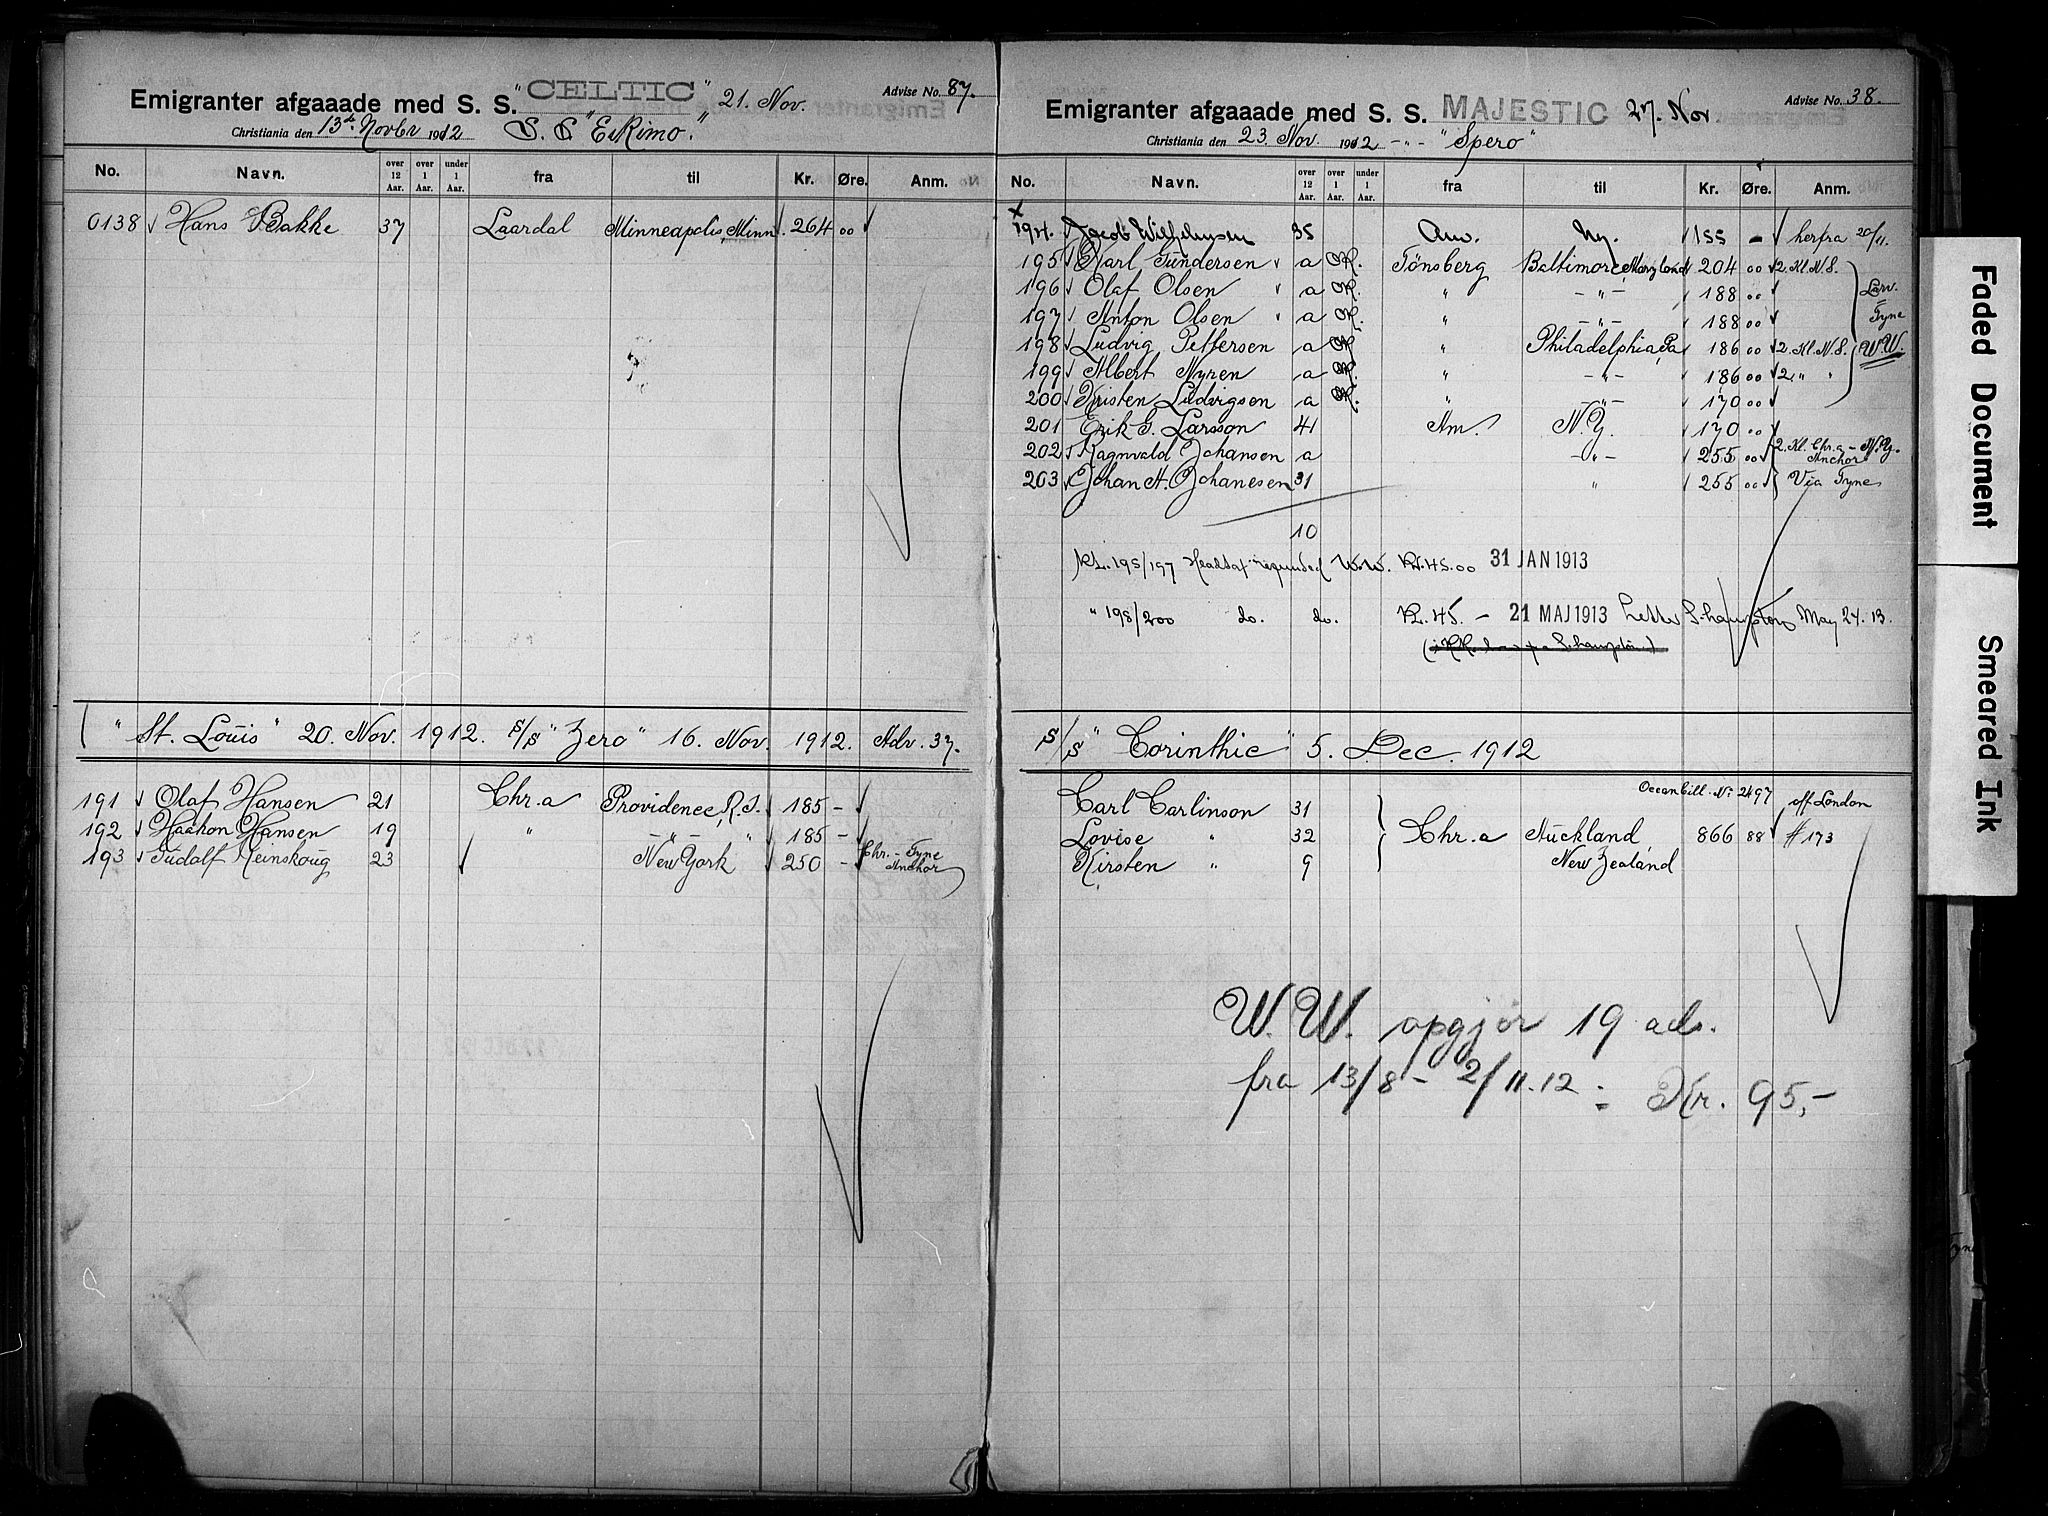 Emigranter afgaaade med S. S. "CELTIC" 21. Nov. Advise No. 87.
Christiania den 13de Novbr 1912 S. S "Eskimo."
No. Navn. over 12 Aar. over 1 Aar. under 1 Aar. fra til Kr. Øre. Anm.
0138 Hans Bakke 37 Laardal Minneapolis, Minn. 264 00
"St. Louis" 20. Nov. 1912. S/S "Zero" 16. Nov. 1912. Adv. 37.
191 Olaf Hansen 21 Chr.a Providence, R.I. 185 -
192 Haakon Hansen 19 " -"- " 185 -
193 Rudolf Reinskoug 23 New York 250 - Chr. - Tyne
Anchor
Emigranter afgaaade med S. S. MAJESTIC 27. Nov Advise No. 38.
Christiania den 23. Nov. 1912 -"- "Spero"
No. Navn. over 12 Aar. over 1 Aar. under 1 Aar. fra til Kr. Øre. Anm.
x
194. Jacob Wilhelmsen 35 Am. Ny. 155 - herfra 20/11.
195 Karl Gundersen a Tönsberg Baltimore, Maryland 204 00 2. Kl. N.S.
196 Olaf Olsen a " -"- 188 00 Larv.
197 Anton Olsen a " -"- 188 00 Tyne
198 Ludvig Pettersen a " Philadelphia, Pa 186 00 2. Kl. N.S. W.W.
199 Albert Nyren a " -"- 186 00 2. " "
200 Kristen Ludvigsen a " -"- 170 00
201 Erik G. Larsson 41 Am. N.Y. 170 00
202 Ragnvald Johansen a -"- 255 00 2. Kl. Chr.a - N.Y.
Anchor
203 Johan A. Johanesen 31 " 255 00 Via Tyne
10
No. 195/197 Headtax refunded W.W. Kr. 45.00 31 JAN 1913
" 198/200 do. do. Kr. 45. - 21 MAJ 1913 Letter S.hampton May 24. 13.
S/S "Corinthic" 5. Dec. 1912
Oceanbill. No 2497
Carl Carlinson 31 off. London
Lovise " 32 Chr.a Auckland 866 88 # 173
Kirsten " 9 New Zealand
W.W. opgjör 19 ads.
fra 13/8 - 2/11.12 = Kr. 95,-
Faded Document
Smeared Ink